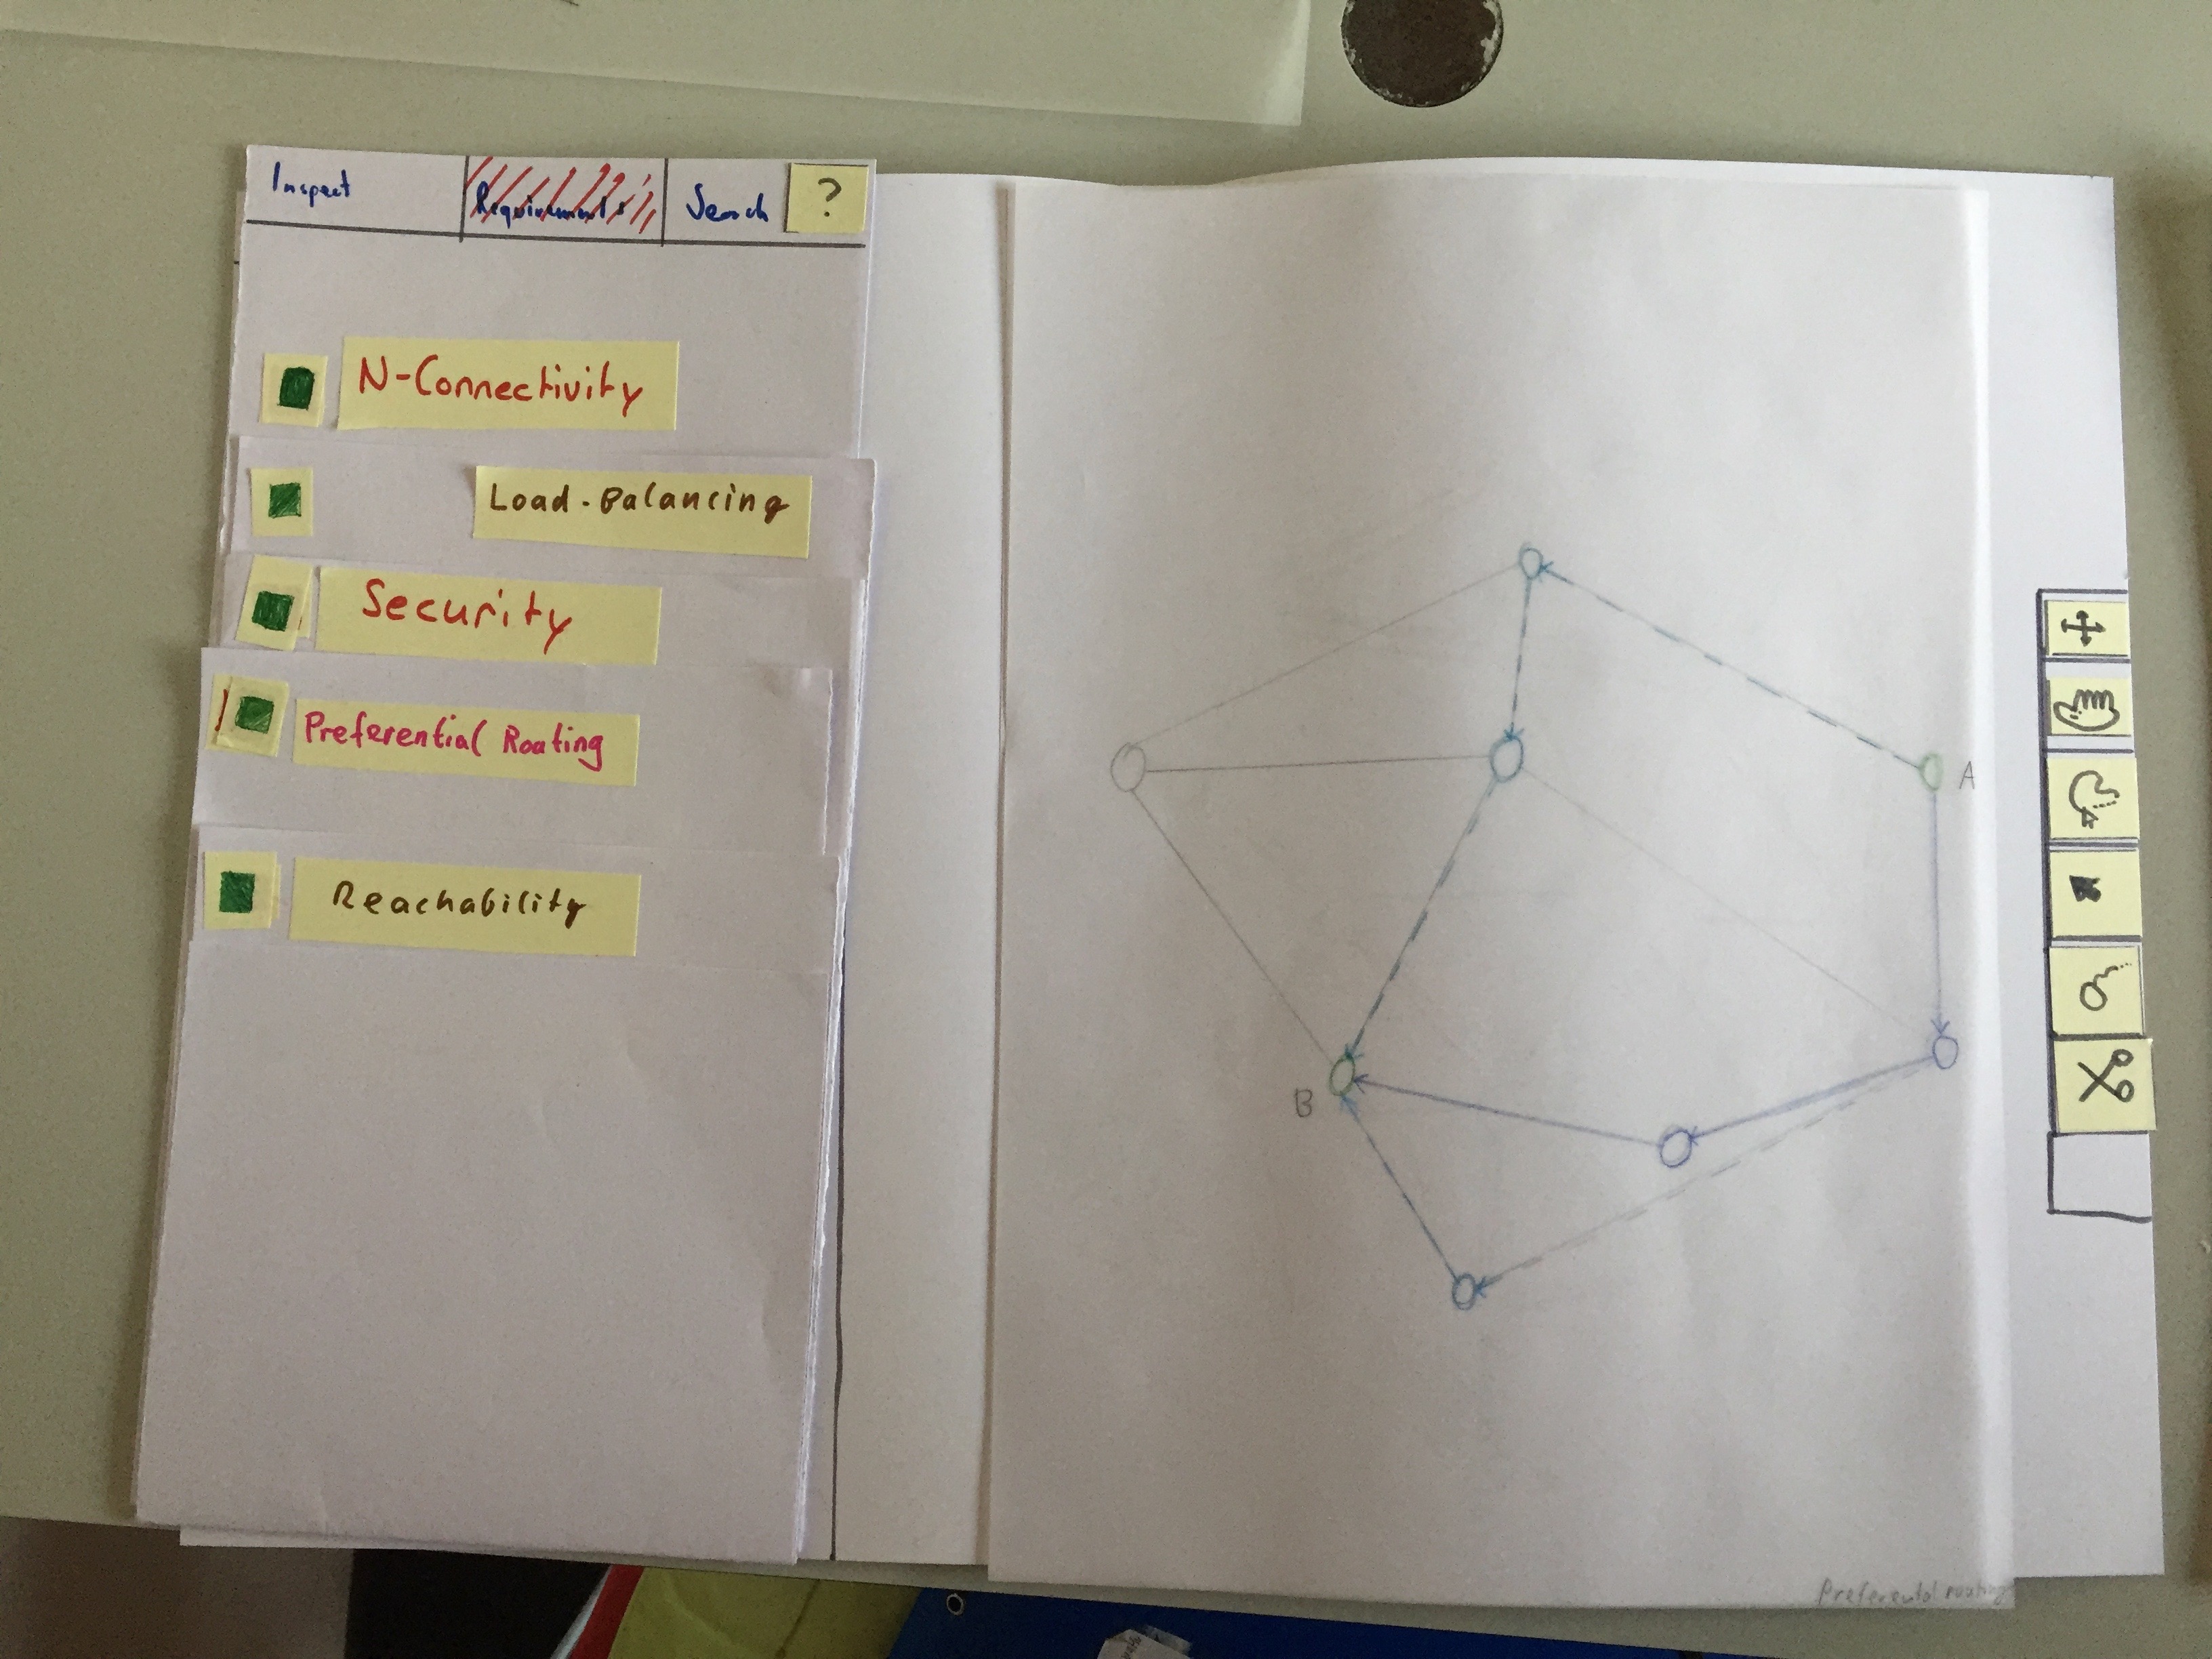 Inspect
Requirements
Search
?
N-Connectivity
Load-Balancing
Security
Preferential Routing
Reachability
A
B
Preferental routing